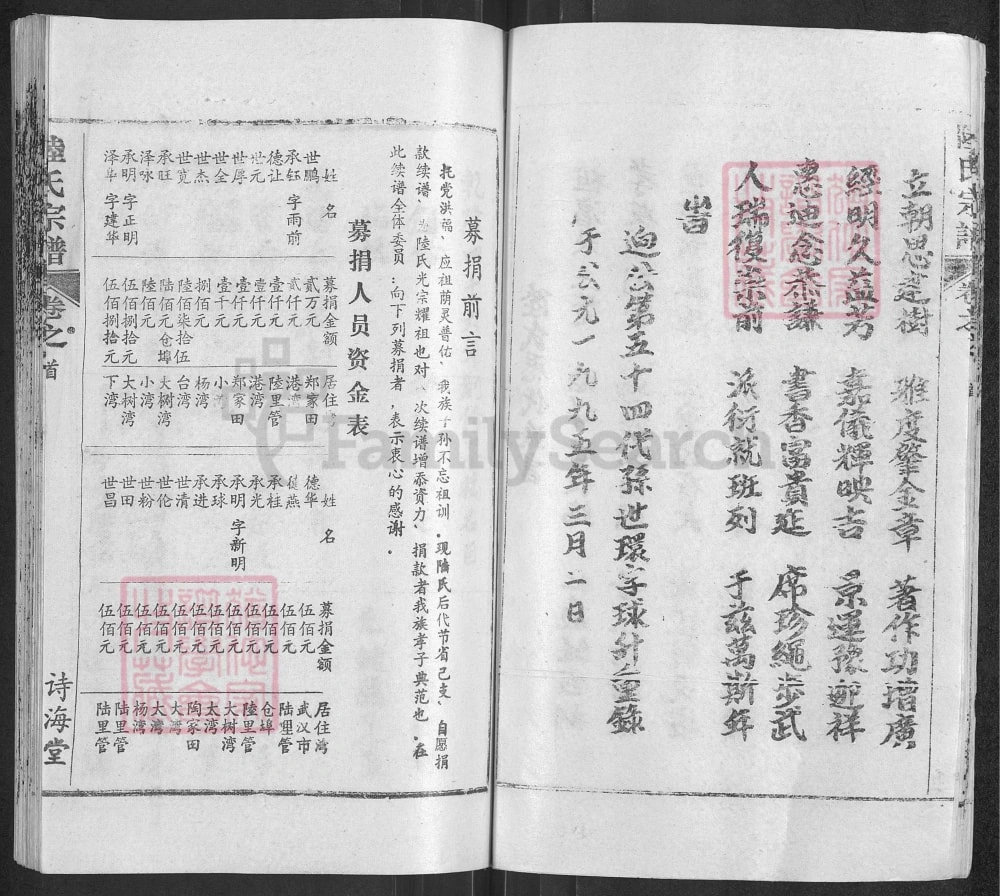 立朝思建樹 雅度肇金章 著作功增廣
經明久益芳 嘉儀輝映吉 景運豫迎祥
惠迪念恭謙 書香富貴延 席珍繩步武
人瑞復崇前 派衍統班列 于兹萬斯年
迫公第五十四代孫世環字球
公元一九九五年三月二日
陸氏宗谱
卷之首
诗海堂
募捐前言
托党洪福、应祖荫灵普佑、我族子孙不忘祖训．现陆氏后代节省己支、自愿捐
款续谱、陸氏光宗耀祖也对 次续谱增添资力、捐款者我族孝子典范也．在
此续谱全体委员：向下列募捐者，表示衷心的感谢．
募捐人员资金表
姓名 募捐金额 居住湾
世鹏 贰万元 郑家田
承钰字雨前 贰仟元 港湾
德让 壹仟元 陸里管
世元 壹仟元 港湾
世厚 壹仟元 郑家田
世全 壹千元 小湾
世杰 捌佰元 杨湾
世莧 陸佰柒拾伍 台湾
承旺 陆佰元 仓埠
泽咏 陸佰元 小湾
承明字正明 伍佰捌拾元 大树湾
泽华字建华 伍佰捌拾元 下湾
姓名 募捐金额 居住湾
德华 伍佰元 武汉市
燕 伍佰元 陆里管
承桂 伍佰元 仓埠
承光 伍佰元 陸里管
承明字新明 伍佰元 大树湾
承球 伍佰元 太湾
承进 伍佰元 陶家田
世清 伍佰元 大湾
世伦 伍佰元 大湾
世粉 伍佰元 杨湾
世田 伍佰元 陆里管
世昌 伍佰元 陆里管
FamilySearch